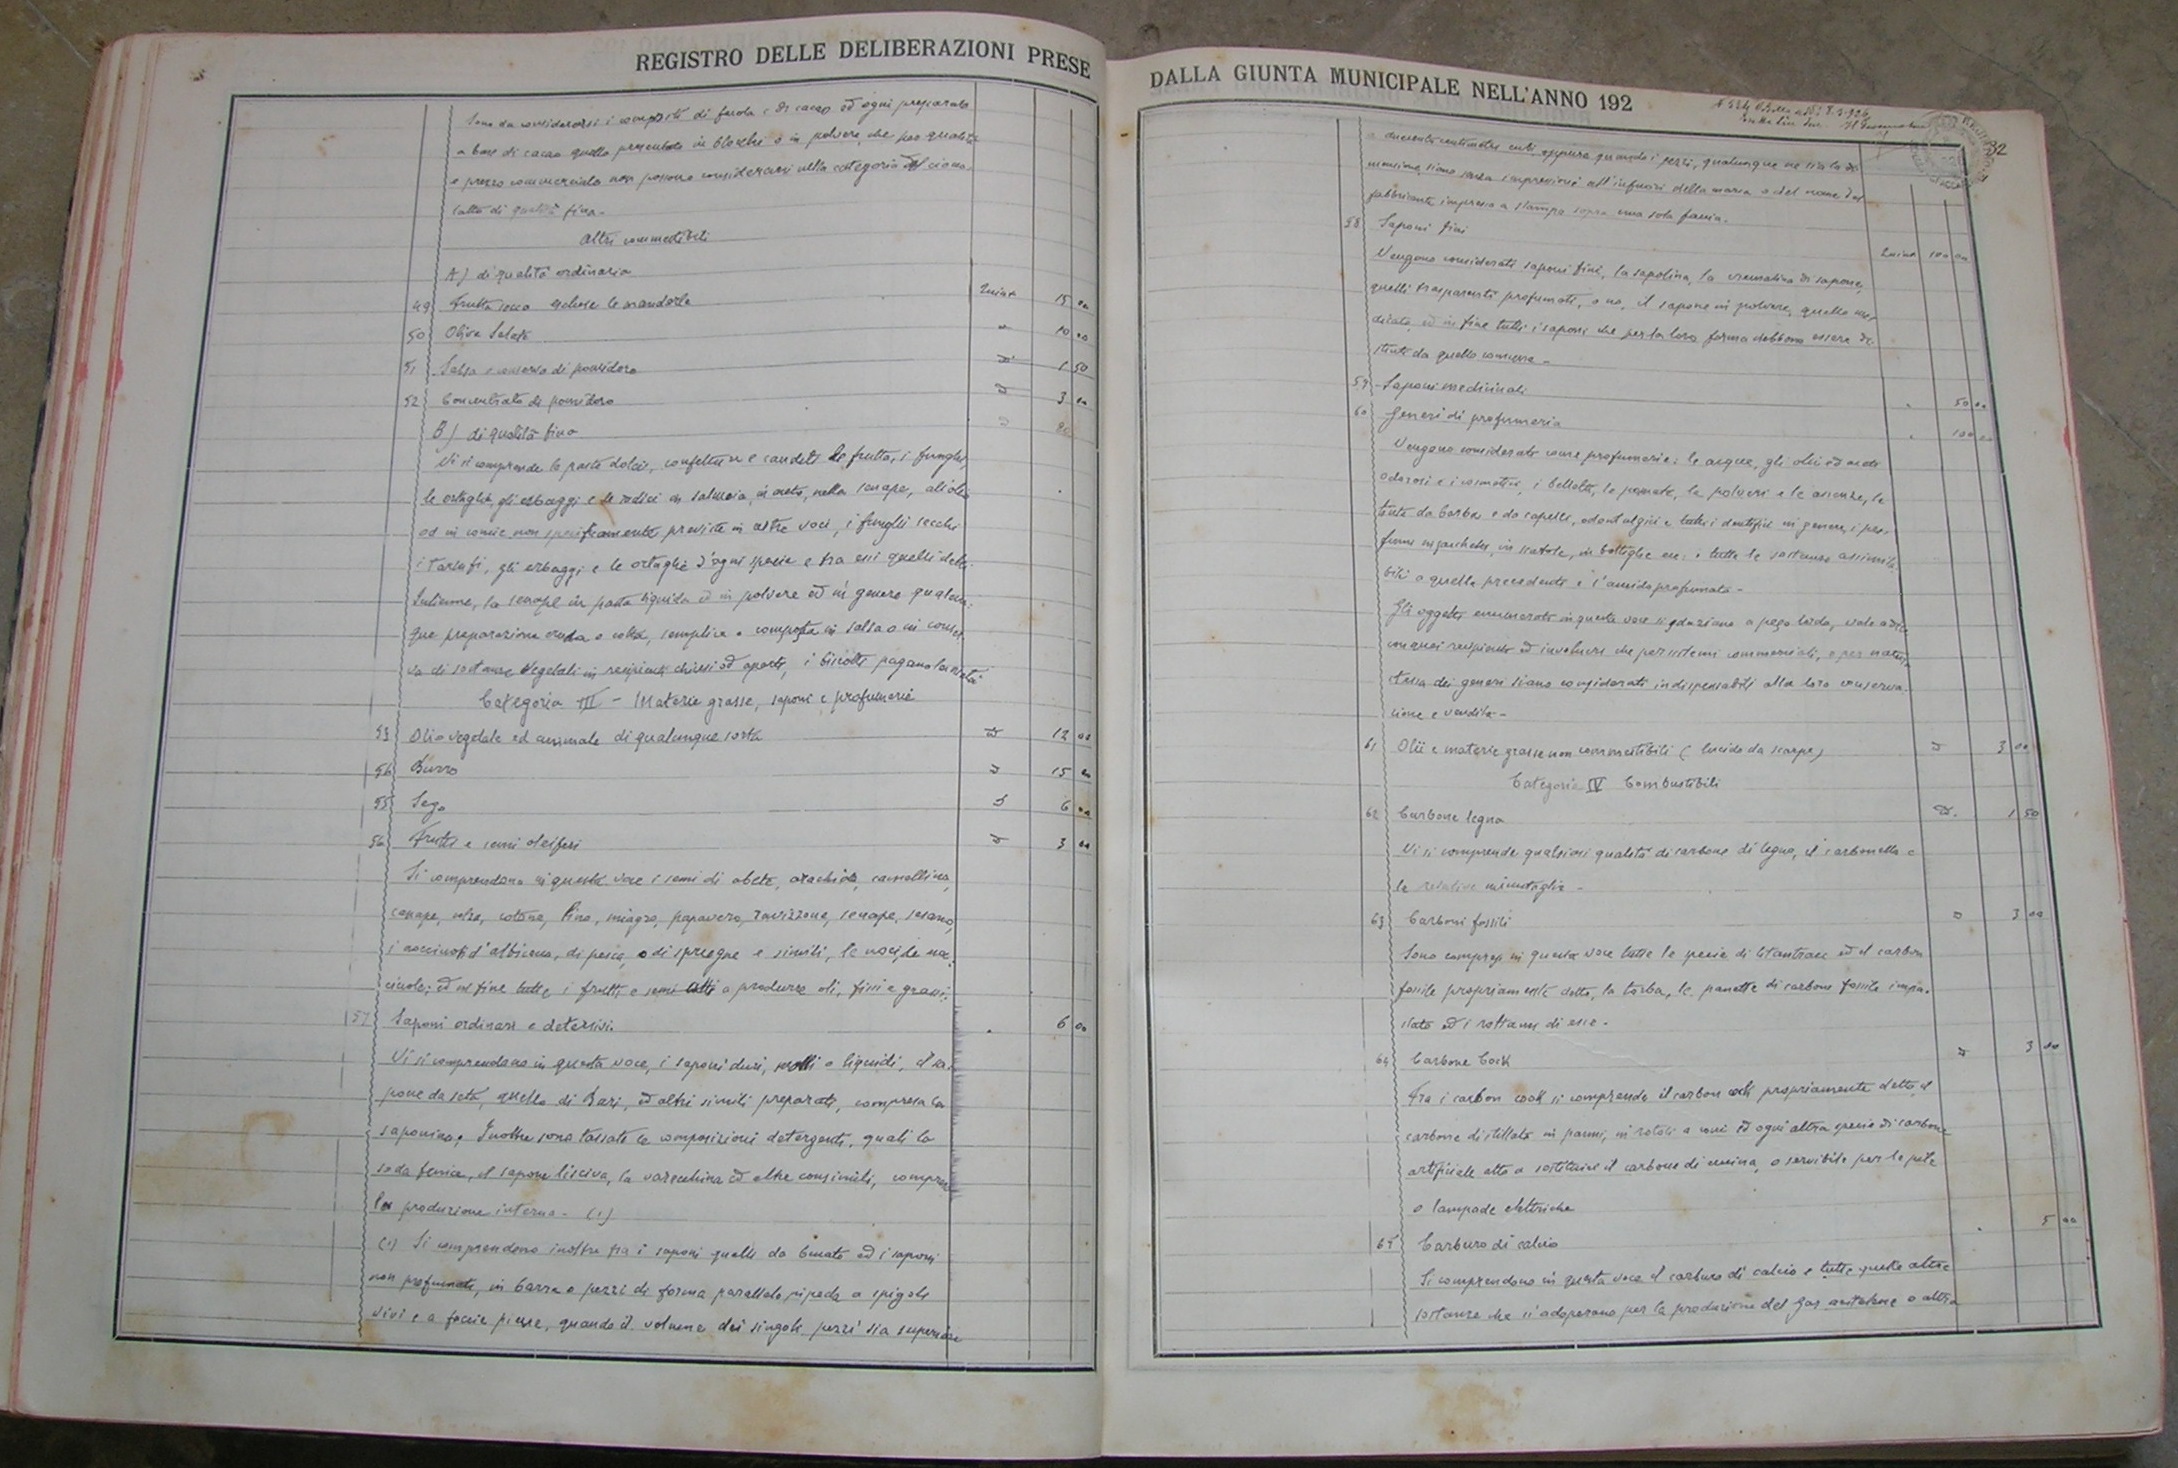 REGISTRO DELLE DELIBERAZIONI PRESE
Sono da considerarsi i composti di fecola e di cacao ed ogni preparato
a base di cacao quello presentato in blocchi o in polvere, che per qualità
e prezzo commerciale non possono considerarsi nella categoria del cioco-
latto di qualità fina.
Altri commestibili
A) di qualità ordinaria
49 Frutta secca escluse le mandorle 15 00
50 Olive Salate " 10 00
51 Salsa e conserva di pomidoro 1 50
52 Concentrato di pomidoro 3 00
B) di qualità fina
Vi si comprende le paste dolci, confetture e canditi le frutta, i funghi,
le ortaglie, gli erbaggi e le radici in salamoia, in aceto, nella senape, all'olio
od in conie non specificamente previste in altre voci, i funghi secchi
i tartufi, gli erbaggi e le ortaglie d'ogni specie e tra essi quelli delle
Julienne, la senape in pasta liquida ed in polvere ed in genere qualun-
que preparazione cruda o cotta, semplice o composta in salsa o in conser-
va di sostanze vegetali in recipienti chiusi od aperti, i biscotti pagano la metà
Categoria III - Materie grasse, saponi e profumerie
53 Olio vegetale ed animale di qualunque sorta 12 00
54 Burro 15 00
55 Sego 6 00
56 Frutti e semi oleiferi 3 00
Si comprendono in questa voce i semi di abete, arachide, camellina,
canape, colza, cotone, lino, miagro, papavero, ravizzone, senape, sesamo,
i noccinoli d'albicocco, di pesca, o di spregne e simili, le noci, le noc-
ciuole; ed in fine tutti i frutti e semi atti a produrre oli, fissi e grassi.
57 Saponi ordinari e detersivi. 6 00
Vi si comprendono in questa voce, i saponi duri, molli o liquidi, il sa-
pone da seta, quello di Bari, ed altri simili preparati, compresa la
saponina. Inoltre sono tassate le composizioni detergenti, quali la
soda fenice, il sapone lisciva, la varecchina ed altre consimili, compresa
la produzione interna. (1)
(1) Si comprendono inoltre fra i saponi quelli da bucato ed i saponi
non profumati, in barre o pezzi di forma parallelepipeda a spigoli
vivi e a faccie piane, quando il volume dei singoli pezzi sia superiore
DALLA GIUNTA MUNICIPALE NELL'ANNO 192
32
a duecento centimetri cubi, oppure quando i pezzi, qualunque ne sia la di-
mensione, siano senza impressione all'infuori della marca o del nome del
fabbricante impressa a stampa sopra una sola faccia.
58 Saponi fini 100 00
Vengono considerati saponi fini, la sapolina, la crematina di sapone,
quelli trasparenti profumati, o no, il sapone in polvere, quello me-
dicato, ed in fine tutti i saponi che per la loro forma debbono essere di-
stinti da quello comune -
59 Saponi medicinali 50 00
60 Generi di profumeria 100 00
Vengono considerate come profumerie: le acque, gli olii ed aceti
odorosi e i cosmetici, i belletti, le pomate, le polveri e le essenze, le
tinte da barba e da capelli, odontalgici e tutti i dentifrici in genere, i pro-
fumi in sacchetti, in scatole, in bottiglie ecc. e tutte le sostanze assimila-
bili a quelle precedenti e l'amido profumato -
Gli oggetti enumerati in questa voce si daziano a peso lordo, vale a dire
con quei recipienti ed involucri che per sistemi commerciali, o per natura
stessa dei generi siano considerati indispensabili alla loro conserva-
zione e vendita -
61 Olii e materie grasse non commestibili (lucido da scarpe) 3 00
Categoria IV Combustibili
62 Carbone legna 1 50
Vi si comprende qualsiasi qualità di carbone di legna, il carbonella e
le relative minutaglie -
63 Carboni fossili 3 00
Sono compresi in questa voce tutte le specie di litantrace ed il carbon
fossile propriamente detto, la torba, le panette di carbone fossile impa-
stato ed i rottami di esse.
64 Carbone Cock 3 00
Fra i carbon cook si comprende il carbon cock propriamente detto, il
carbone distillato in panni, in rotoli a coni ed ogni altra specie di carbone
artificiale atto a sostituire il carbone di cucina, o servibile per le pile
o lampade elettriche
65 Carburo di calcio 5 00
Si comprendono in questa voce il carburo di calcio e tutte quelle altre
sostanze che si adoperano per la produzione del gas acetilene o altra